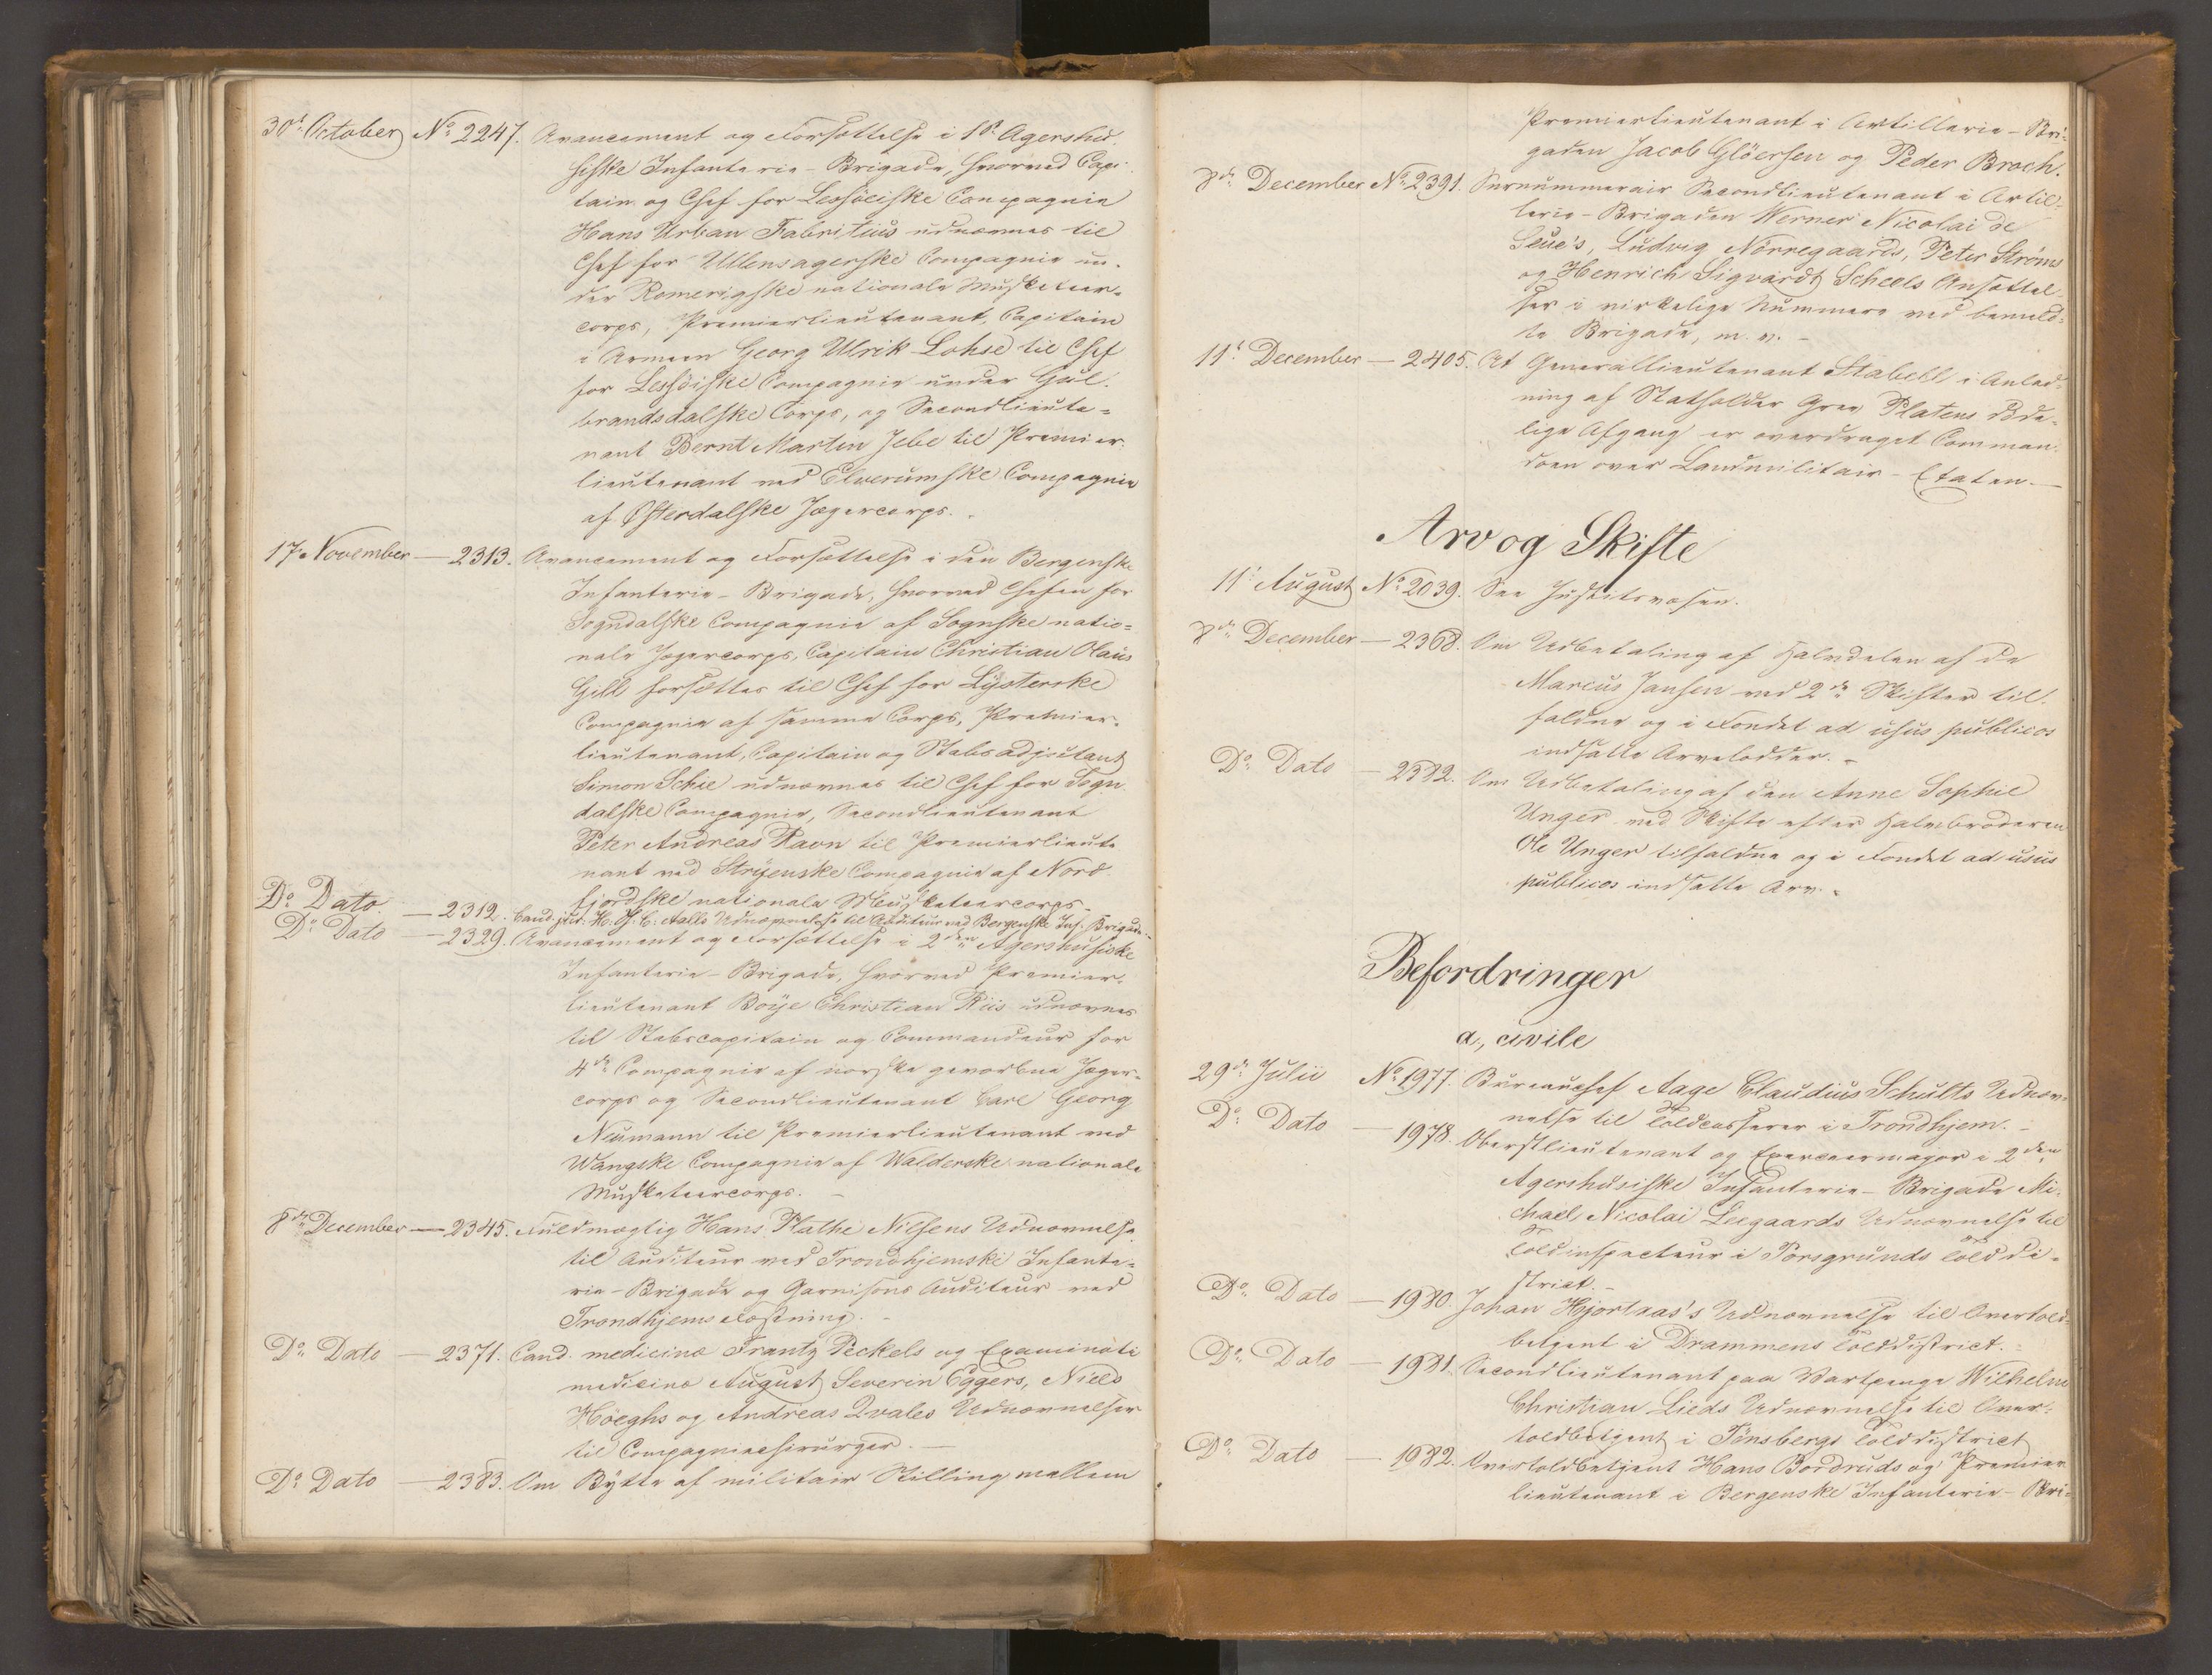 30t October No 2247. Avancement og Forsættelse i 1st Agershu-
siske Infanterie-Brigade, hvorved Capi-
tain og Chef for Lessöeiske Compagnie
Hans Urban Fabritius udnævnes til
Chef for Ullensagerske Compagnie un-
der Romerigske nationale Musketeer-
corps, Premierlieutenant, Capitain
i Armeen Georg Ulrik Lohse til Chef
for Lessöiske Compagnie under Gul-
brandsdalske Corps, og Secondlieute-
nant Bernt Martin Jebe til Premier-
lieutenant ved Elverumske Compagnie
af Østerdalske Jægercorps.
17. November — 2313. Avancement og Forsættelse i den Bergenske
Infanterie-Brigade, hvorved Chefen for
Sogndalske Compagnie af Sognske natio-
nale Jægercorps, Capitain Christian Olaus
Gill forsættes til Chef for Lysterske
Compagnie af samme Corps, Premier-
lieutenant, Capitain og Stabsadjutant
Simon Schie udnævnes til Chef for Sogn-
dalske Compagnie, Secondlieutenant
Peter Andreas Ravn til Premierlieute-
nant ved Stryenske Compagnie af Nord-
fjordske nationale Musketeercorps.
Do Dato — 2312. Cand. jur. H. J. C. Aalls Udnævnelse til Auditeur ved Bergenske Inf. Brigade.
Do Dato — 2329. Avancement og Forsættelse i 2den Agershusiske
Infanterie-Brigade, hvorved Premier-
lieutenant Boÿe Christian Riis udnævnes
til Stabscapitain og Commandeur for
4de Compagnie af norske gevorbne Jæger-
corps og Secondlieutenant Carl Georg
Neumann til Premierlieutenant ved
Wangske Compagnie af Walderske nationale
Musketeercorps. —
8de December — 2345. Fuldmægtig Hans Plathe Nilsens Udnævnelse
til Auditeur ved Trondhjemske Infante-
rie-Brigade og Garnisons Auditeur ved
Trondhjems Fæstning. —
Do Dato — 2371. Cand. medicinæ Frantz Peckels og Examinati
medicinæ August Severin Eggers, Niels
Höeghs og Andreas Qvales Udnævnelser
til Compagniechirurger. —
Do Dato — 2383. Om Bytte af militair Stilling mellem
Premierlieutenant i Artillerie-Bri-
gaden Jacob Glöersen og Peder Broch.
8de December No 2391. Surnummerair Secondlieutenant i Artil-
lerie-Brigaden Werner Nicolai de
Seue's, Ludvig Nörregaards, Peter Ströms
og Henrich Sigvardt Scheels Ansættel-
ser i virkelige Nummere ved bemeld-
te Brigade, m. v. —
11t December — 2405. At Generallieutenant Stabell i Anled-
ning af Statholder Grev Platens döde-
lige Afgang er overdraget Comman-
doen over Landmilitair-Etaten. —
Arv og Skifte
11t August No 2039. See Justitsvæsen.
8de December — 2368. Om Udbetaling af Halvdelen af de
Marcus Jansen ved 2de Skifter til-
faldne og i Fondet ad usus publicos
indsatte Arvelodder. —
Do Dato — 2382. Om Udbetaling af den Anne Sophie
Unger ved Skifte efter Halvbroderen
Ole Unger tilfaldne og i Fondet ad usus
publicos indsatte Arv. —
Befordringer
a, civile
29de Julii No 1977. Bureauchef Aage Claudius Schults Udnæv-
nelse til Toldcasserer i Trondhjem. —
Do Dato — 1978. Oberstlieutenant og Exerceermajor i 2den
Agershusiske Infanterie-Brigade Mi-
chael Nicolai Leegaards Udnævnelse til
Toldinspecteur i Porsgrunds Tolddi-
strict. —
Do Dato — 1980. Johan Hjortaas's Udnævnelse til Overtold-
betjent i Drammens Tolddistrict. —
Do Dato — 1981. Secondlieutenant paa Vartpenge Wilhelm
Christian Lieds Udnævnelse til Over-
toldbetjent i Tönsbergs Tolddistrict
Do Dato — 1982. Overtoldbetjent Hans Bordruds og Premier-
lieutenant i Bergenske Infanterie-Bri-